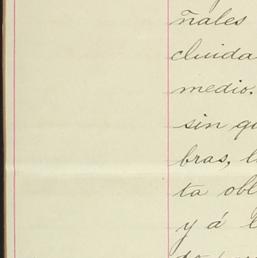 ñales
cluida
medio.
sin qu
bras, l
ta obl
y á l